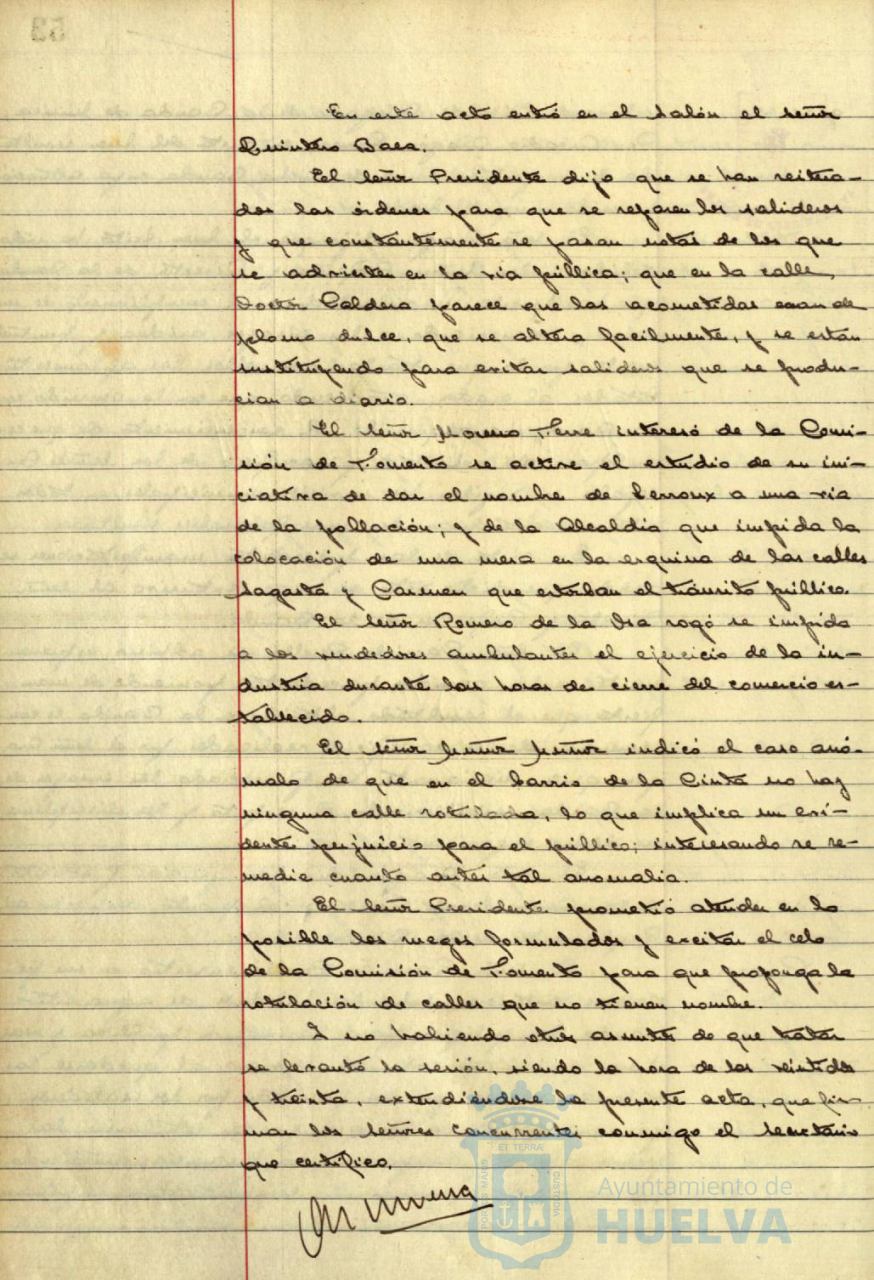 En este acto entró en el salón el señor
Quintero Baea.
El señor Presidente dijo que se han reitera-
dos las órdenes para que se reparen los salideros
y que constantemente se pasan notas de los que
se advierten en la via pública; que en la calle,
Doctor Caldera parece que las acometidas eran de
plomo dulce, que se altera facilmente, y se estan
sustituyendo para evitar salideros que se produ-
cian a diario.
El señor Moreno Ferre interesó de la Comi-
sión de Fomento se active el estudio de su ini-
ciativa de dar el nombre de Lerroux a una via
de la población; y de la Alcaldia que impida la
colocación de una mesa en la esquina de las calles
Sagasta y Carmen que estorban el tránsito público.
El señor Romero de la Osa rogó se impida
a los vendedores ambulantes el ejercicio de la in-
dustria durante las horas de cierre del comercio es-
tablecido.
El señor Muñoz Muñoz indicó el caso anó-
malo de que en el barrio de la Cinta no hay
ninguna calle rotulada, lo que implica un evi-
dente perjuicio para el público; interesando se re-
medie cuanto antes tal anomalia.
El señor Presidente prometió atender en lo
posible los ruegos formulados y excitar el celo
de la Comisión de Fomento para que proponga la
rotulación de calles que no tienen nombre.
Y no habiendo otros asuntos de que tratar
se levantó la sesión, siendo la hora de las veintidos
y treinta, extendiéndose la presente acta, que fir-
man los señores concurrentes conmigo el secretario
que certifico.
Ayuntamiento de
HUELVA